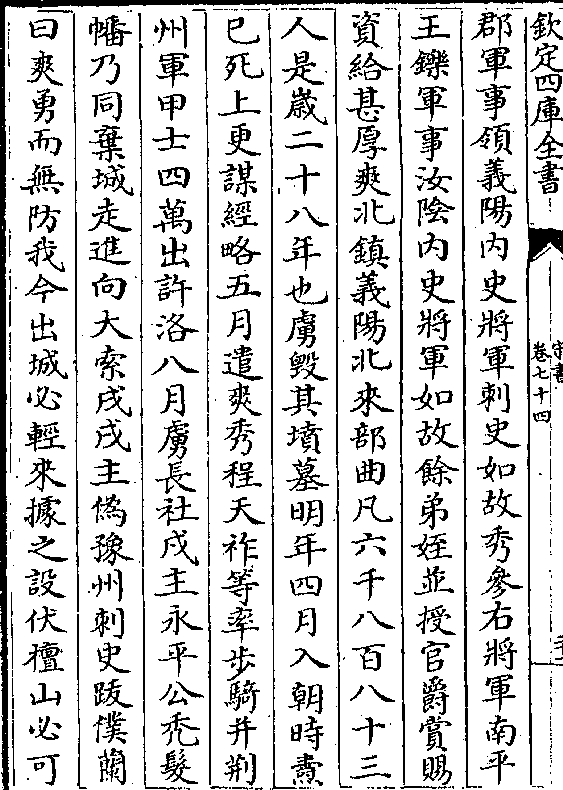 欽定四庫全書
宋書
卷七十四
郡軍事領義陽內史將軍刺史如故秀參右將軍南平
王鑠軍事汝陰內史將軍如故餘弟姪並授官爵賞賜
資給甚厚爽北鎮義陽北來部曲凡六千八百八十三
人是嵗二十八年也虜毀其墳墓明年四月入朝時燾
已死上更謀經略五月遣爽秀程天祚等率步騎并荆
州軍甲士四萬出許洛八月虜長社戍主永平公禿髮
幡乃同棄城走進向大索戍戍主偽豫州刺史跋僕蘭
曰爽勇而無防我今出城必輕來據之設伏檀山必可